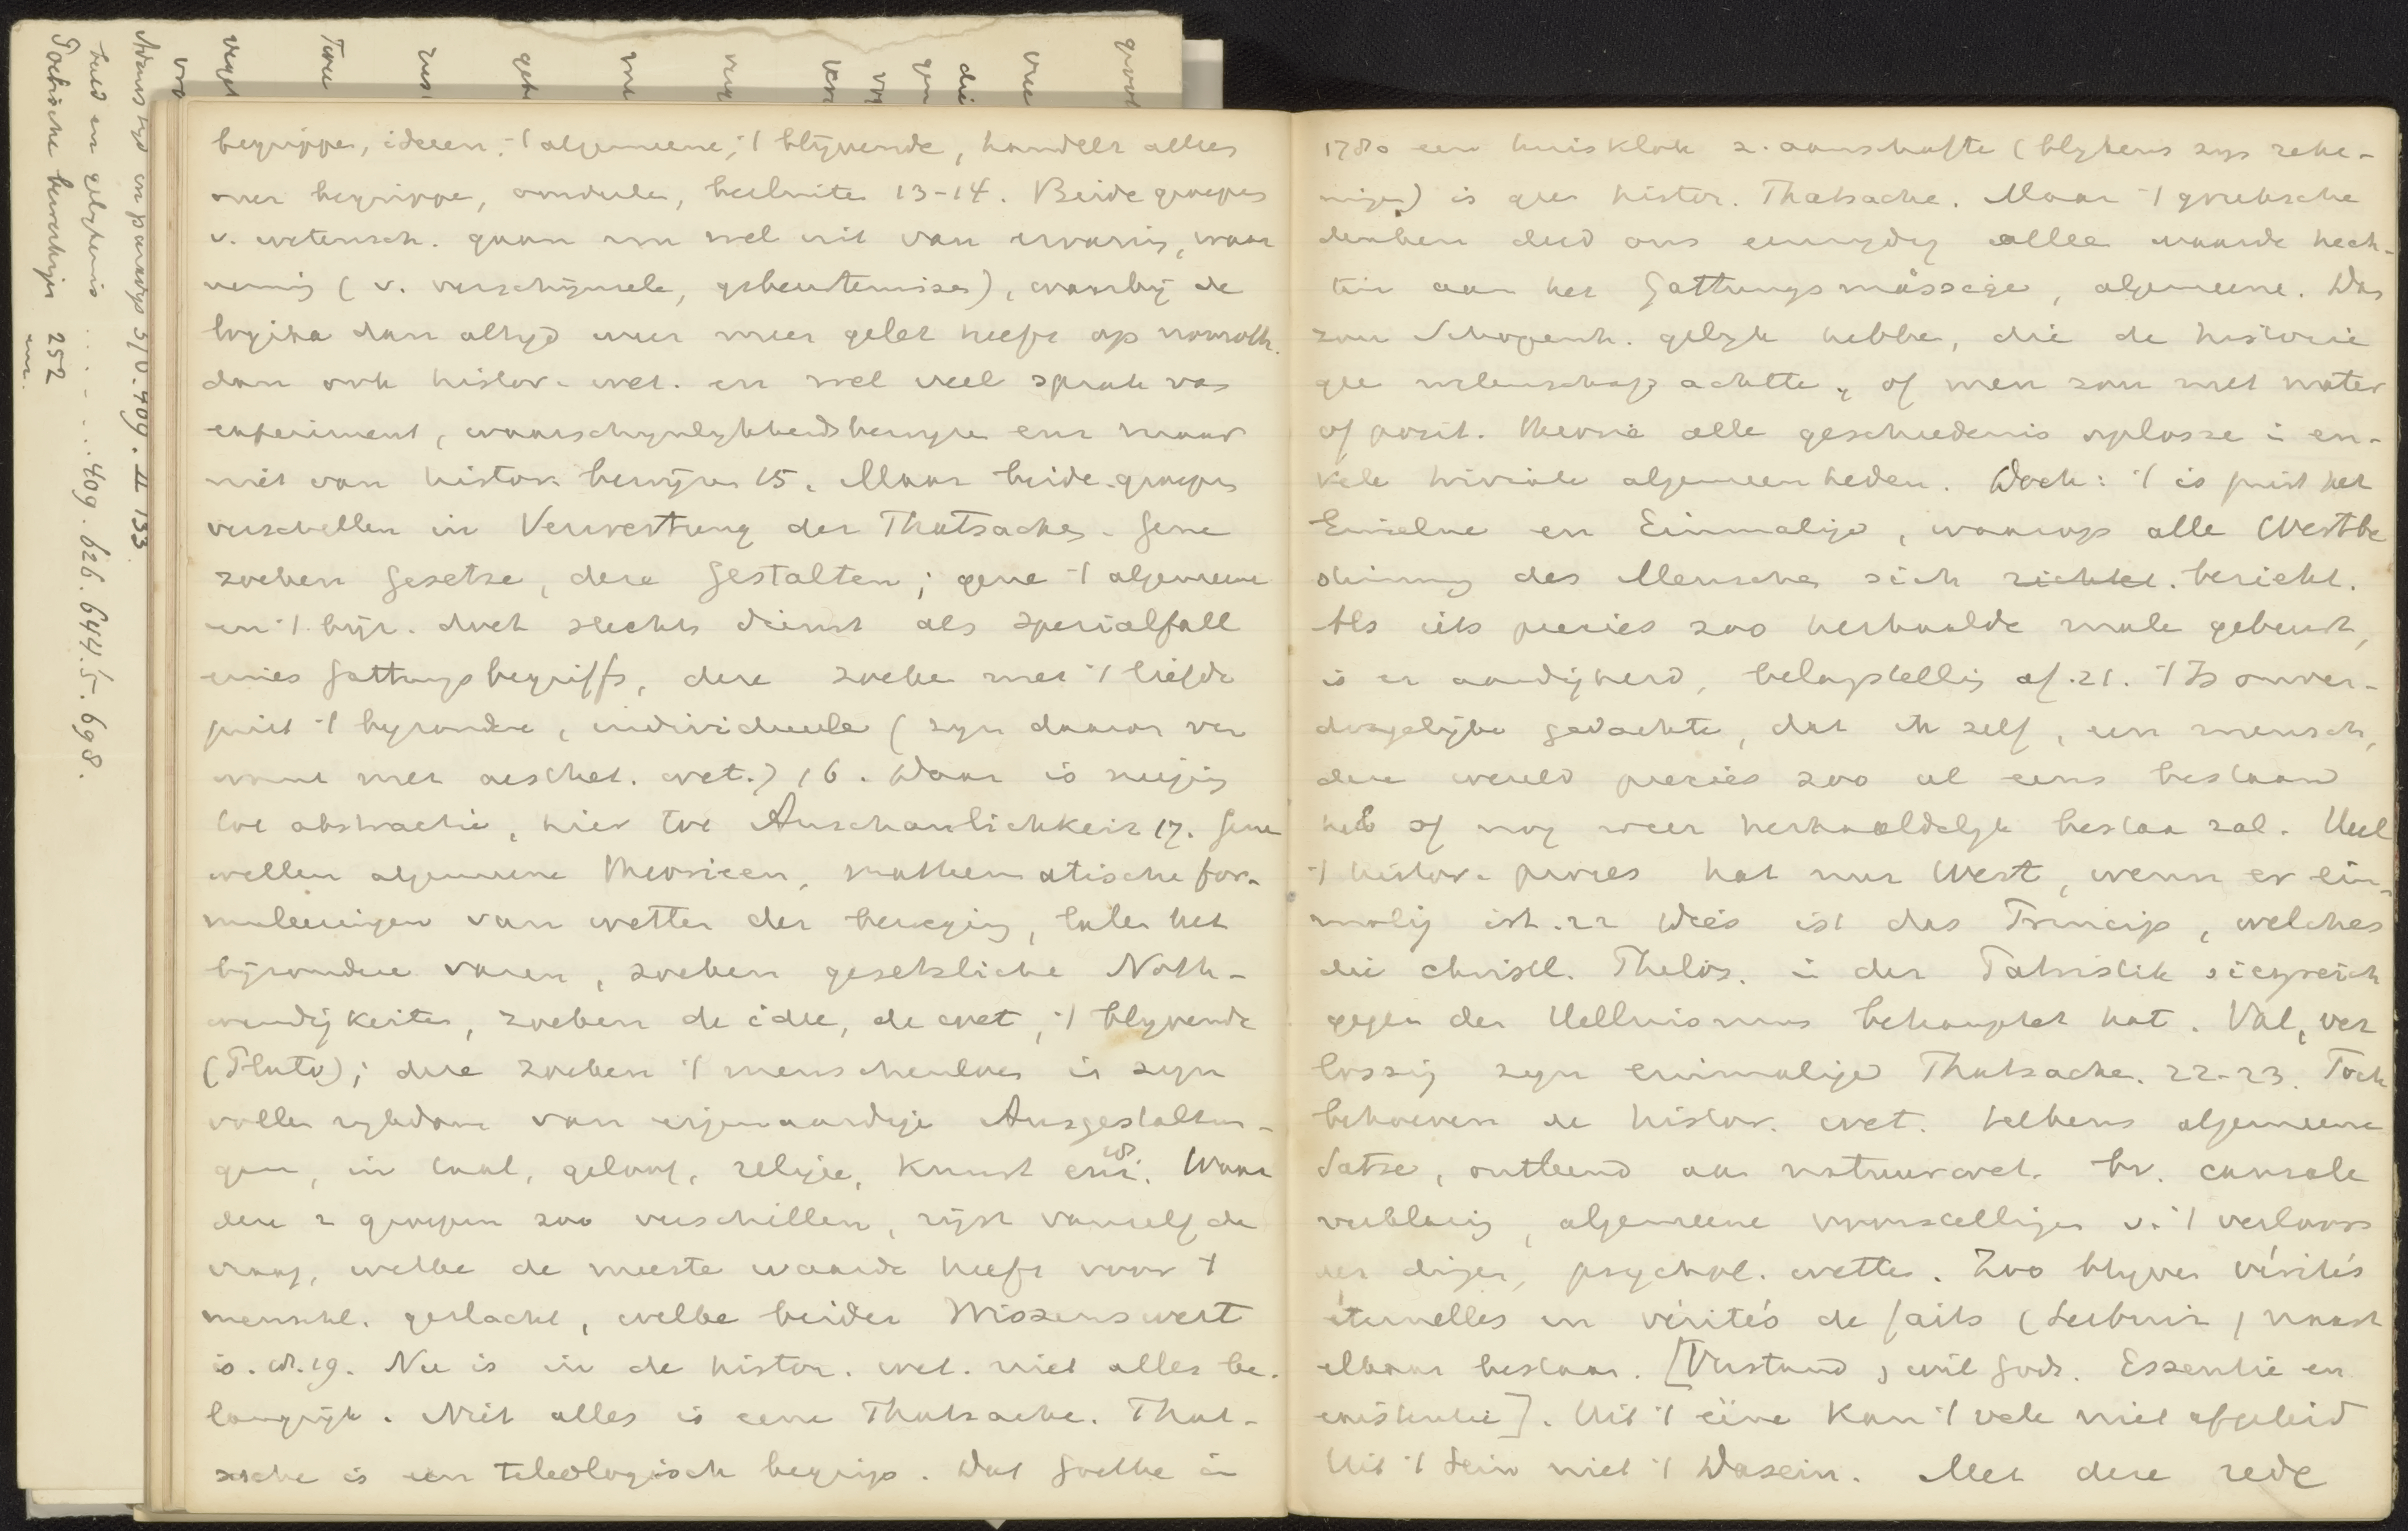 begrippen, ideeen, 't algemeene, 't blijvende, handelt alles
over begrippe, oordeele, besluite 13-14. Beide groepen
v. wetensch. gaan nu wel uit van ervaring, waar
neming (v. verschijnsele, gebeurtenissen), waarbij de
logika dan altijd veel meer gelet heeft op nomoth.
dan ook histor. wet. en wel veel sprak van
experiment, waarschynlykheidsbewyze enz maar
niet van histor. bewijze 15. Maar beide groepen
verschillen in Verwertung der Thatsachen. Gene
zoeken Gesetze, deze Gestalten; gene 't algemeene
en 't bijz. doet slechts dienst als Spezialfall
eines Gattungsbegriffs, deze zoeke met 't liefde
juist 't byzondre, individueele (zyn daarom ver
want met aesthet. wet.) 16. Daar is neiging
tot abstractie, hier tot Anschaulichkeit 17. Gene
willen algemeene theorieen, mathematische for-
muleeringen van wetten der beweging, laten het
bijzondere varen, zoeken gesetzliche Noth-
wendigkeiten, zoeken de idee, de wet, 't blyvende
(Plato); deze zoeken 't menschenleven in zyn
volle rykdom van eigenaardige Ausgestaltun-
gen, in taal, geloof, religie, kunst enz. 18 Waar
deze 2 groepen zoo verschillen, rijst vanzelf de
vraag, welke de meeste waarde heeft voor 't
menschl. geslacht, welke beider Wissenswert
is. 18. 19. Nu is in de histor. wet. niet alles be-
langrijk. Niet alles is eene Thatsache. That-
sache is een teleologisch begrip. Dat Goethe in
1780 een huisklok z. aanschafte (blykens zyn reke-
ningen) is geen histor. Thatsache. Maar 't grieksche
denken deed ons eenzydig alleen waarde hech-
ten aan het Gattungsmässige, algemeene. Dan
zou Schopenh. gelyk hebbe, die de historie
geen wetenschap achtte, of men zou met mater
of posit. theorie alle geschiedenis oplosse in en-
kele triviale algemeenheden. Doch: 't is juist het
Einzelne en Einmalige, waarop alle Wertbe
stimmung des Menschen sich richtet. bezieht.
Als iets precies zoo herhaalde male gebeurt,
is er aardigheid, belangstelling af. 21. 't Is onver-
dragelijke gedachte, dat ik zelf, een mensch,
deze wereld precies zoo al eens bestaan
heb of nog weer herhaaldelyk bestaa zal. Heel
't histor. proces hat nur Wert, wenn er ein-
malig ist. 22 Dies ist das Princip, welches
die christl. Philos. in der Patristik siegreich
gegen den Hellenismus behauptet hat. Val, ver
lossing zyn einmalige Thatsache. 22-23. Toch
behoeven de histor. wet. telkens algemeene
Sätze, ontleend aan natuurwet. bv. causale
verklaring, algemeene voorstellingen v. 't verloop
der dingen, psychol. wetten. Zoo blyven vérités
éternelles en vérités de faits (Leibniz) naast
elkaar bestaan. [Verstand, wil Gods. Essentie en
existentie]. Uit 't ééne kan 't vele niet afgeleid
Uit 't Sein niet 't Dasein. Met deze rede
Adams tyd en paradys 5/0. 409. II 133.
. . . . . . 409. 626. 644. 5. 698.
252